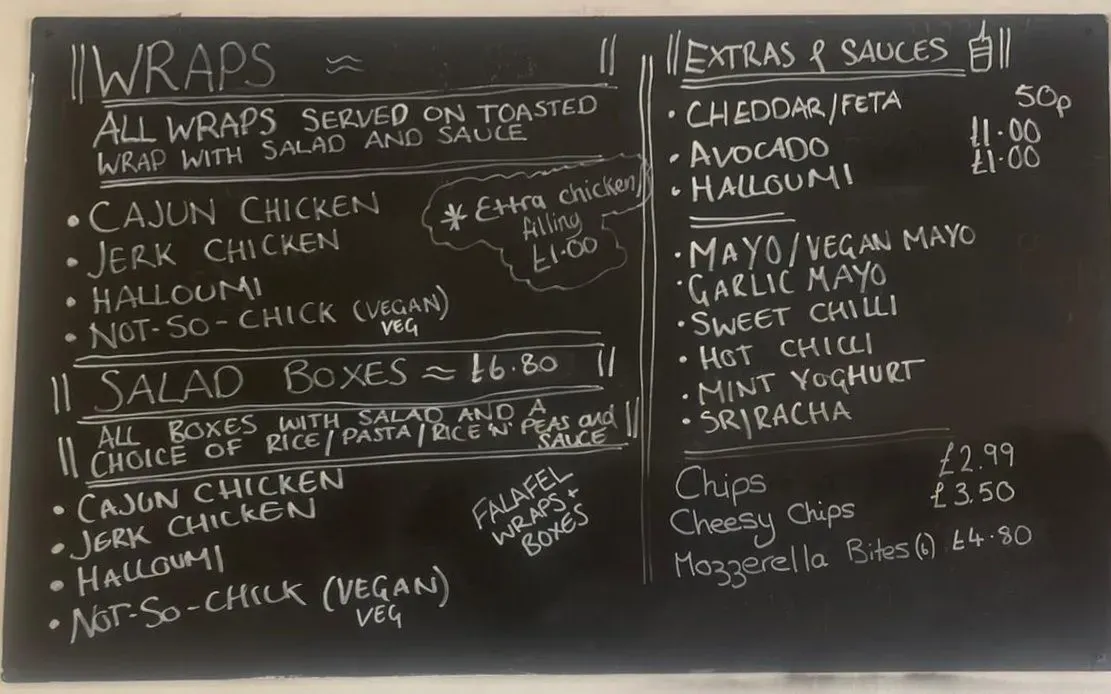 WRAPS ≈
ALL WRAPS SERVED ON TOASTED
WRAP WITH SALAD AND SAUCE
• CAJUN CHICKEN
• JERK CHICKEN
• HALLOUMI
• NOT-SO-CHICK (VEGAN)
VEG
* Extra chicken
filling
£1.00
SALAD BOXES ≈ £6.80
ALL BOXES WITH SALAD AND A
CHOICE OF RICE/PASTA/RICE 'N' PEAS and
SAUCE
• CAJUN CHICKEN
• JERK CHICKEN
• HALLOUMI
• NOT-SO-CHICK (VEGAN)
VEG
FALAFEL
WRAPS +
BOXES
EXTRAS & SAUCES
• CHEDDAR/FETA 50p
• AVOCADO £1.00
• HALLOUMI £1.00
• MAYO/VEGAN MAYO
• GARLIC MAYO
• SWEET CHILLI
• HOT CHILLI
• MINT YOGHURT
• SRIRACHA
Chips £2.99
Cheesy Chips £3.50
Mozzerella Bites (6) £4.80